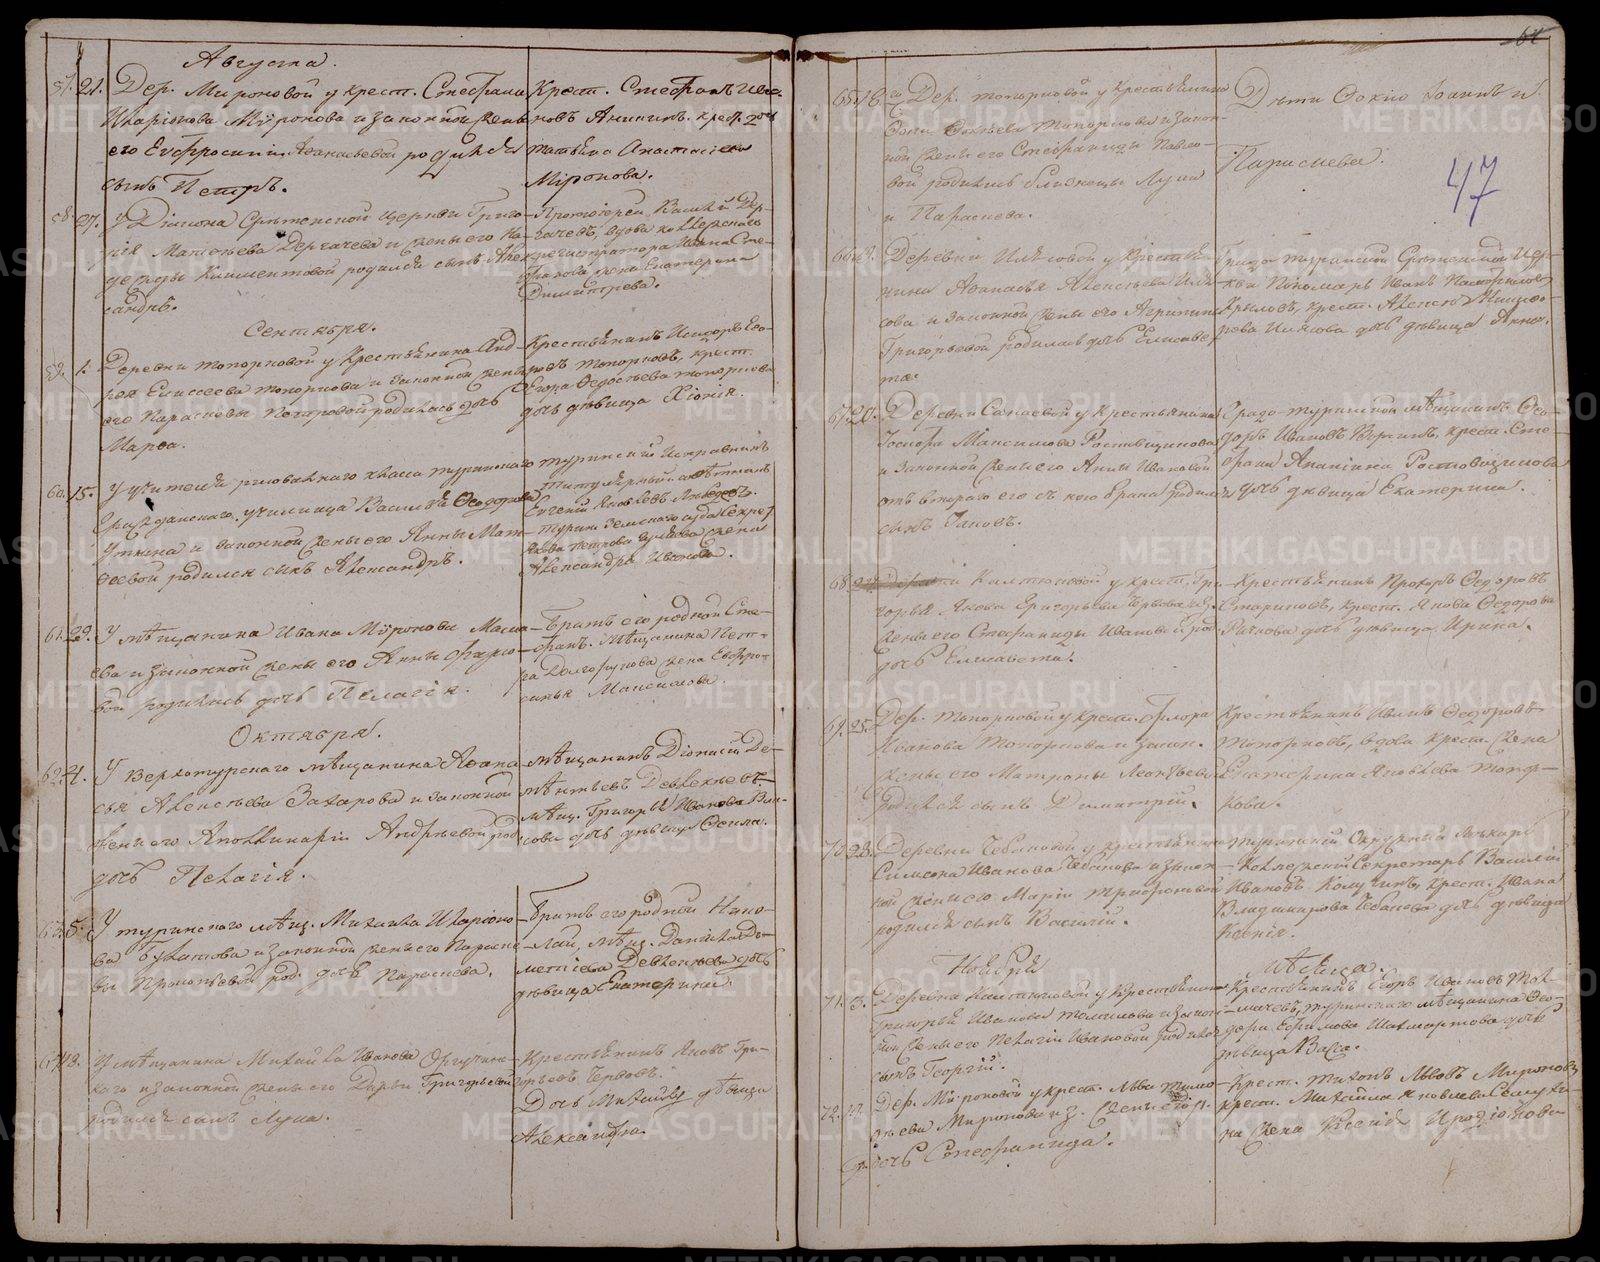 Августа.
57. 21. Дер. Мироновой у крест. Стефана
Иларіонова Мѵронова и законной жены
его Евфросиніи Аѳанасьевой родился
сынъ Петръ.
Крест. Стефанъ Ива-
новъ Аникинъ. крест. доч
Татьяна Анастасіева
Міронова.
58. 27. У Діакона Срѣтенской церкви Григо-
рія Матѳѣева Дергачева и жены его На-
дежды Климентовой родился сынъ Алек-
сандръ.
Протоіерей Василій Дер-
гачевъ, вдова коллежскаго
регистратора Ивана Сте-
фанова жена Екатерина
Димитріева.
Сентября.
59. 1. Деревни Топорковой у Крестьянина Анд-
рея Елисеева Топоркова и законной жены
его Параскевы Петровой родилась дочь
Марѳа.
Крестьянинъ Исидоръ Его-
ровъ Топорковъ, крест.
Егора Ѳедосѣева Топоркова
дочь дѣвица Хіонія.
60. 15. У учителя рисовальнаго класса Туринскаго
Гражданскаго училища Василья Ѳеодорова
Уткина и законной жены его Анны Мат-
ѳеевой родился сынъ Александръ.
Туринскій Исправникъ
Титулярный совѣтникъ
Евгеній Яковлевъ
Турин. Земскаго суда Секрет
Якова Петрова жена
Александра Иванова.
61. 29. У мѣщанина Ивана Мѵронова Масла-
ева и законной жены его Анны
вой родилась дочь Пелагія.
Братъ его родной Сте-
фанъ. Мѣщанина Пет-
ра Долгорукова жена Евфро-
синья Максимова
Октября.
62. 4. У Верхотурскаго мѣщанина Аѳана-
сья Алексѣева Захарова и законной
жены его Аполлинаріи Андреевой род
дочь Пелагія.
мѣщанинъ Діонисій Де-
ментьевъ Девлекѣевъ
мѣщ. Григорія Иванова Вла-
сова дочь дѣвица Ѳекла.
63. 5. У Туринскаго мѣщ. Михаила Иларіоно-
ва Булатова и законной жены его Параске-
вы Прокопьевой род. дочь Параскева.
Братъ его родной Нико-
лай, мѣщ. Даніила Де-
ментіева Девлекѣева дочь
дѣвица Екатерина.
64. 13. У мѣщанина Михайла Иванова
каго и законной жены его Дарьи Григорьевой
родился сынъ Лука.
Крестьянинъ Яковъ Гри-
горьевъ Червовъ.
Дочь Михайлы дѣвица
Александра.
61
47
65. 18. Дер. Топорковой у Крестьянина
Ѳоки Ѳокѣева Топоркова и закон-
ной жены его Стефаниды Павло-
вой родились близнецы Лука
и Параскева.
Дѣти Ѳокіо Іоаннъ и
Параскева.
66. 19. Деревни Илясовой у Крестьян-
нина Аѳанасья Алексѣева Иля-
сова и законной жены его Агрипины
Григорьевой родилась дочь Елисавет
та.
Града Туринска Срѣтенской Цер-
кви Пономарь Иванъ
Крыловъ, крест. Алексѣя Никифо-
рова Илясова дочь дѣвица Анна.
67. 20. Деревни Санаевой у Крестьянина
Іосифа Максимова Ростовщикова
и законной жены его Анны Ивановой
отъ втораго его съ нею брака родился
сынъ Іаковъ.
Градо-туринской мѣщанинъ Ѳео-
доръ Ивановъ Вершинъ, крест. Сте-
фана Ананіина Ростовщикова
дочь дѣвица Екатерина.
68. 24. Деревни Калтюковой у крест. Гри-
горья Якова Григорьева Червова и з.
жены его Стефаниды Ивановой род
дочь Елисавета.
Крестьянинъ Прохоръ Ѳедоровъ
Стариковъ, крест. Якова Ѳедорова
Рычкова дочь дѣвица Ирина.
69. 25. Дер. Топорковой у Крест. Флора
Иванова Топоркова и закон.
жены его Матроны Леонтьевой
родился сынъ Димитрій.
Крестьянинъ Иванъ Ѳедоровъ
Топорковъ, вдова крест. жена
Екатерина Яковлева Топор-
кова.
70. 28. Деревни Чебаковой у крестьянина
Симеона Иванова Чебакова и закон-
ной жены его Маріи Трифоновой
родился сынъ Василій.
Туринскій Окружный Лекарь
Коллежскій Секретарь Василій
Ивановъ крест. Ивана
Владимирова Чебакова дочь дѣвица
Ксенія.
Ноября Мѣсяца.
71. 3. Деревни Калтюковой у Крестьянина
Григорья Иванова Толмачева и закон-
ной жены его Пелагіи Ивановой родился
сынъ Георгій.
Крестьянинъ Егоръ Ивановъ Тол-
мачевъ, Туринскаго мѣщанина Ѳео-
дора Ефимова дочь
дѣвица Васса.
72. Дер. Мироновой у крест. Льва Тимо-
ѳѣева Миронова и з. жены его
дочь Стефанида.
Крест. Тихонъ Львовъ Мироновъ
крест. Михаила Яковлева
на жена Ксенія Иродіонова
METRIKI.GASO-URAL.RU